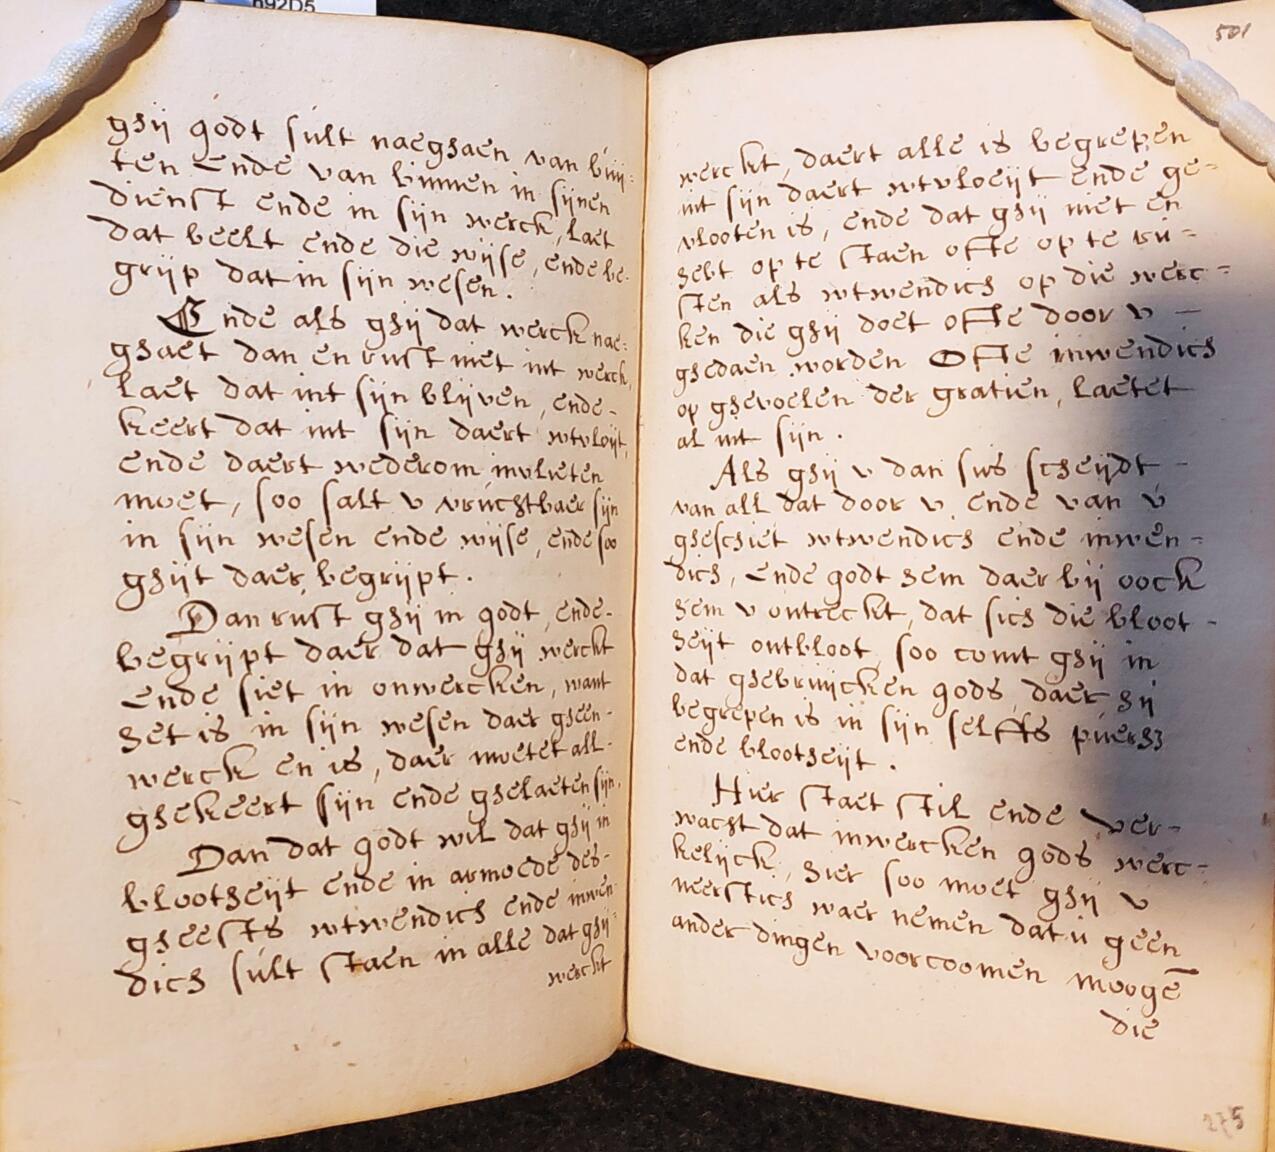 h92D5
ghij godt sult naeghaen van buij=
ten ende van binnen in sijnen
dienst ende in sijn werck, laet
dat beelt ende die wijse, ende be-
grijp dat in sijn wesen.
Ende als ghij dat werck nae=
ghaet dan en rust niet int werck,
laet dat int sijn blijven, ende-
keert dat int sijn daert wtvloijt,
ende daert wederom invlieten
moet, soo salt v vruchtbaer sijn
in sijn wesen ende wijse, ende soo
ghijt daer begrijpt.
Dan rust ghij in godt, ende-
begrijpt daer dat ghij werckt
ende siet in onwercken, want
het is in sijn wesen daer gheen-
werck en is, daer moetet all-
ghekeert sijn ende ghelaeten sijn.
Dan dat godt wil dat ghij in
blootheijt ende in armoede des-
gheests wtwendich ende inwen-
dich sult staen in alle dat ghij=
werckt
501
werckt, daert alle is begrepen
int sijn daert wtvloeijt ende ge=
vlooten is, ende dat ghij niet en
hebt op te staen ofte op te ru=
sten als wtwendich op die werc=
ken die ghij doet ofte door v -
ghedaen worden Ofte inwendich
op ghevoelen der gratien, laetet
al int sijn.
Als ghij v dan sus scheijdt -
van all dat door v, ende van v
gheschiet wtwendich ende inwen=
dich, ende godt hem daer bij oock
hem v ontreckt, dat sich die bloot-
heijt ontbloot, soo comt ghij in
dat ghebruijcken gods, daer hij
begrepen is in sijn selffs puerh3
ende blootheijt.
Hier staet stil ende ver-
wacht dat inwercken gods werc-
kelijck, hier soo moet ghij v
neerstich waer nemen dat u geen
ander dingen voorcoomen mogē
die
275